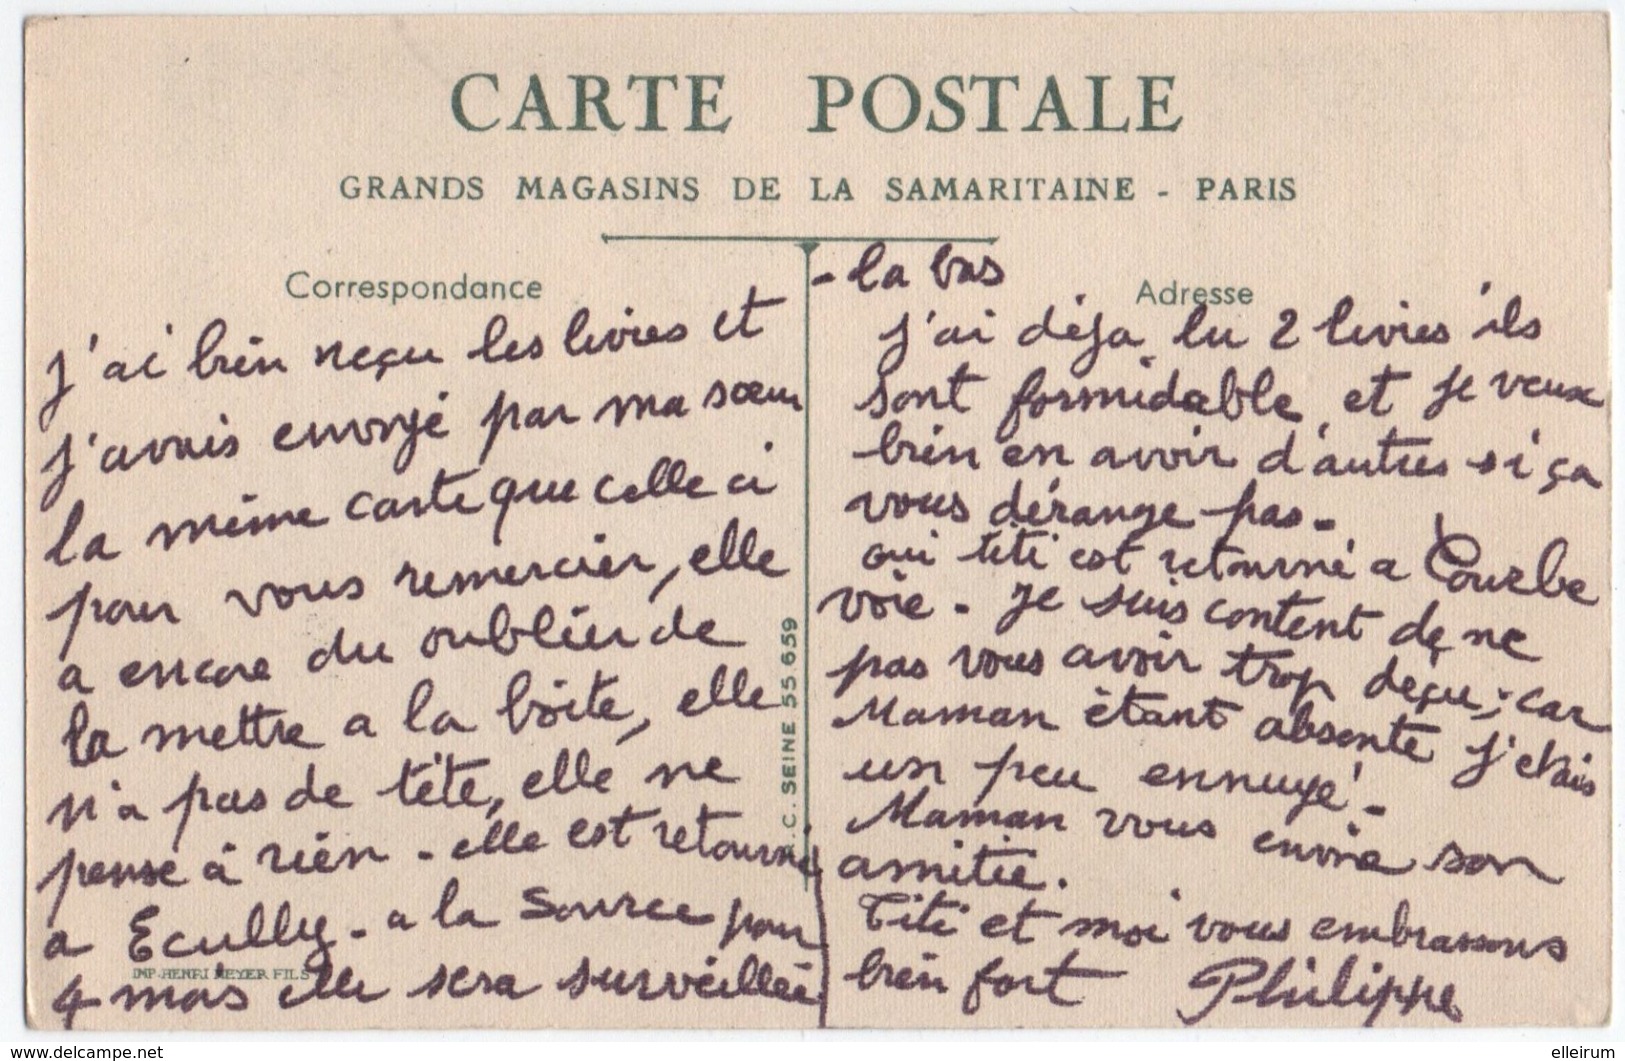 CARTE POSTALE
GRANDS MAGASINS DE LA SAMARITAINE - PARIS
Correspondance
J'ai bien reçu les livres et
j'avais envoyé par ma sœur
la même carte que celle ci
pour vous remercier, elle
a encore du oublier de
la mettre a la boîte, elle
n'a pas de tête, elle ne
pense à rien - elle est retourné
a Ecully - a la Source pour
4 mois elle sera surveillée
IMP. HENRI MEYER FILS
C. SEINE 55 659
- la bas
Adresse
J'ai déja lu 2 livres ils
sont formidable et je veux
bien en avoir d'autres si ça
vous dérange pas -
oui titi est retourné a Courbe
voie - Je suis content de ne
pas vous avoir trop deçu; car
Maman étant absente j'etais
un peu ennuyé -
Maman vous envoie son
amitie.
Titi et moi vous embrassons
bien fort Philippe
www.delcampe.net
elleirum